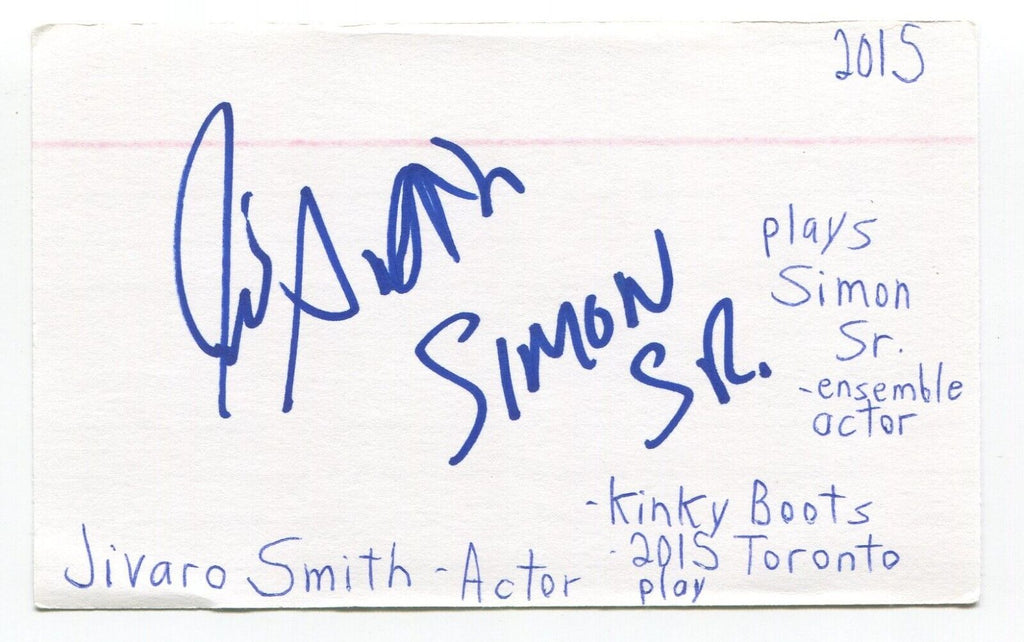 2015
SIMON
SR.
plays
Simon
Sr.
-ensemble
actor
-Kinky Boots
-2015 Toronto
play
Jivaro Smith - Actor